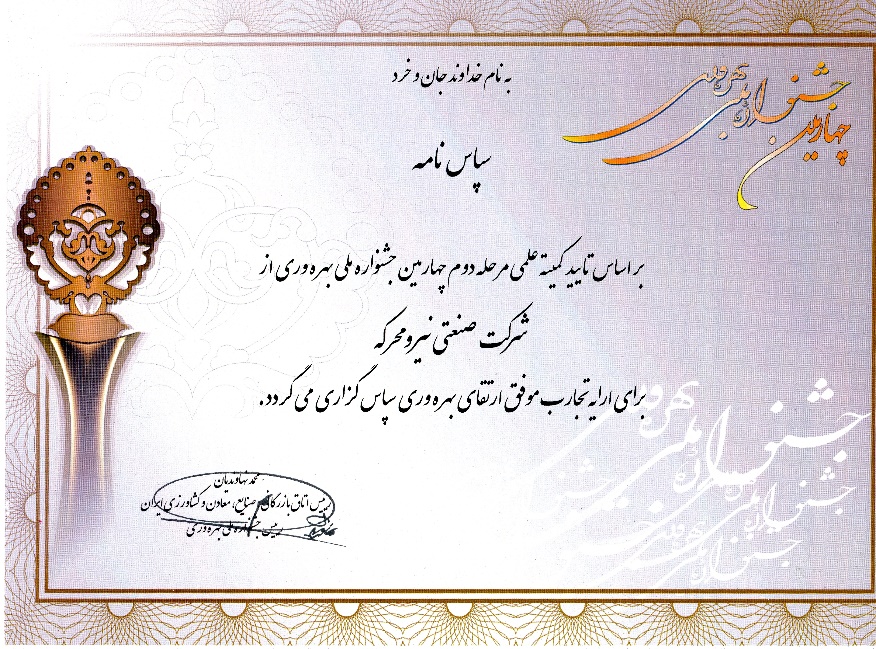 به نام خداوند جان و خرد
چهارمین
جشنواره ملی
بهره وری
سپاس نامه
بر اساس تایید کمیته علمی مرحله دوم چهارمین جشنواره ملی بهره وری از
شرکت صنعتی نیرو محرکه
برای ارایه تجارب موفق ارتقای بهره وری سپاس گزاری می گردد.
محمد نهاوندیان
رییس اتاق بازرگانی، صنایع، معادن و کشاورزی ایران
رییس جشنواره ملی بهره وری
جشنواره ملی
بهره وری
جشنواره ملی
جشنواره ملی